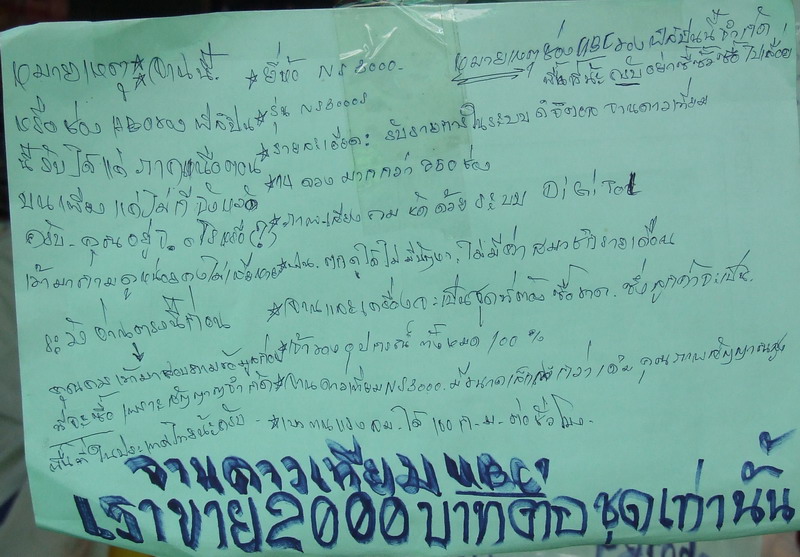 หมายเหตุ★จานนี้ ★ยี่ห้อ NS 3000. หมายเหตุช่อง ABC ของฟิลิปปินนี้จำกัด
พื้นที่นะครับ
หรือช่อง ABC ของฟิลิปิน ★รุ่น NS3000S
นี้รับได้แต่ ภาคเหนือตอน ★รายละเอียด: รับรายการในระบบดิจิตอล จานดาวเทียม
บนเพียง แต่ไม่กี่จังหวัด ★14 ดวง มากกว่า ช่อง
ครับ. คุณอยู่ ★ภาพ-เสียง คมชัดด้วยระบบ DiGiTaL
เข้ามาถามดูหน่อยคงไม่เสียหาย ★ฝน. ตกดูได้ไม่มีปัญหา. ไม่มีค่าสมาชิกรายเดือน
ระวังอ่านตรงนี้ก่อน ★จานและเครื่องจะเป็นชุดที่ต้องซื้อขาด. ซึ่งลูกค้าจะเป็น.
★เจ้าของอุปกรณ์ ทั้งหมด 100 %
คุณควรเข้ามาสอบถามข้อมูลก่อน
ที่จะซื้อ เพราะสัญญาณจำกัด ★จานดาวเทียม NS3000. มีขนาดเล็ก กว่าเดิม คุณภาพสัญญาณสูง
พื้นที่ในประเทศไทยนะครับ - ★ทนแรงลม. ได้ 100 ก.ม. ต่อชั่วโมง.
จานดาวเทียม UBC
เราขาย2000บาทต่อ ชุดเท่านั้น